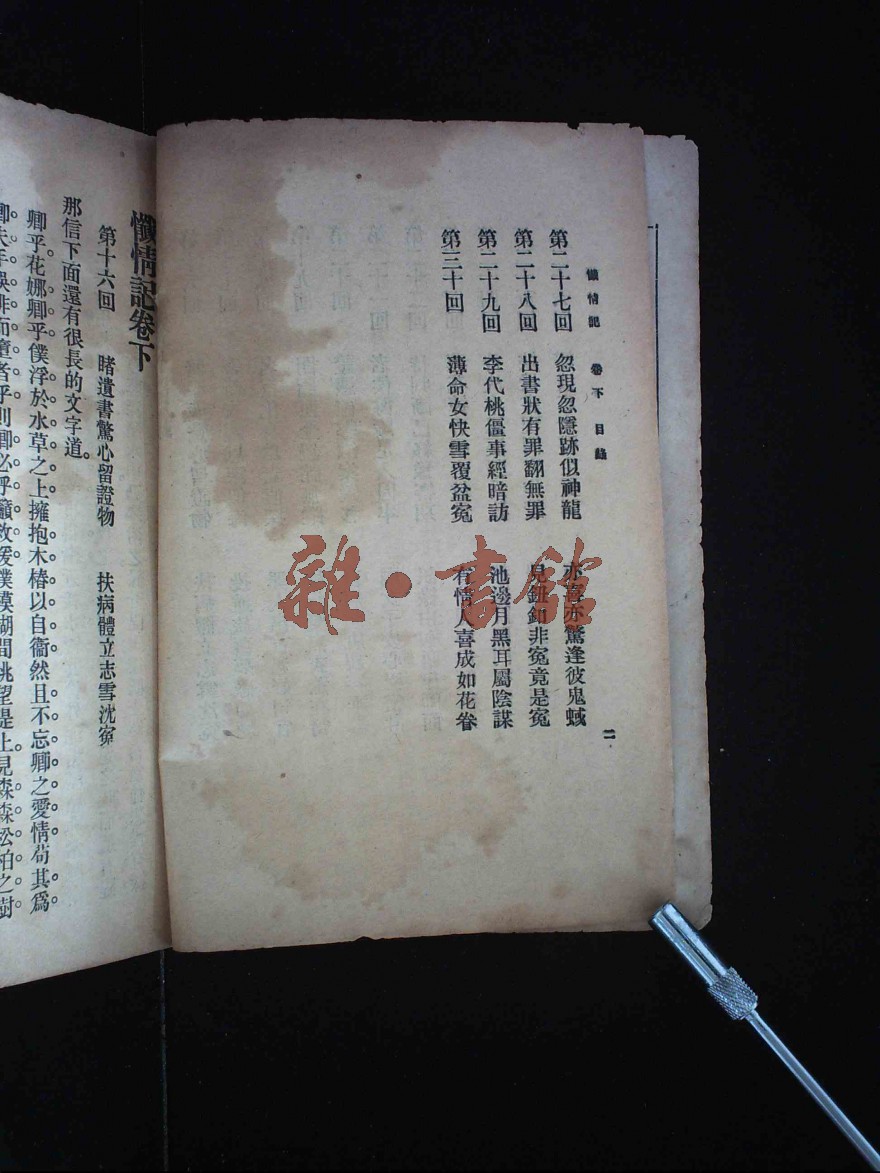 懺情記　卷下　目錄
二
第二十七回　忽現忽隱跡似神龍　亦喜亦驚逢彼鬼蜮
第二十八回　出書狀有罪翻無罪　見鈕釦非冤竟是冤
第二十九回　李代桃僵事經暗訪　池邊月黑耳屬陰謀
第三十回　薄命女快雪覆盆冤　有情人喜成如花眷
雜•書館
懺情記卷下
第十六回　睹遺書驚心留證物　扶病體立志雪沈寃
那信下面還有很長的文字道。
卿乎花娜卿乎僕浮於水草之上擁抱木樁以自衞然且不忘卿之愛情苟其爲
卿失手誤非而童者乎則卿必呼籲救援僕模糊間眺望是上見森森松柏之樹